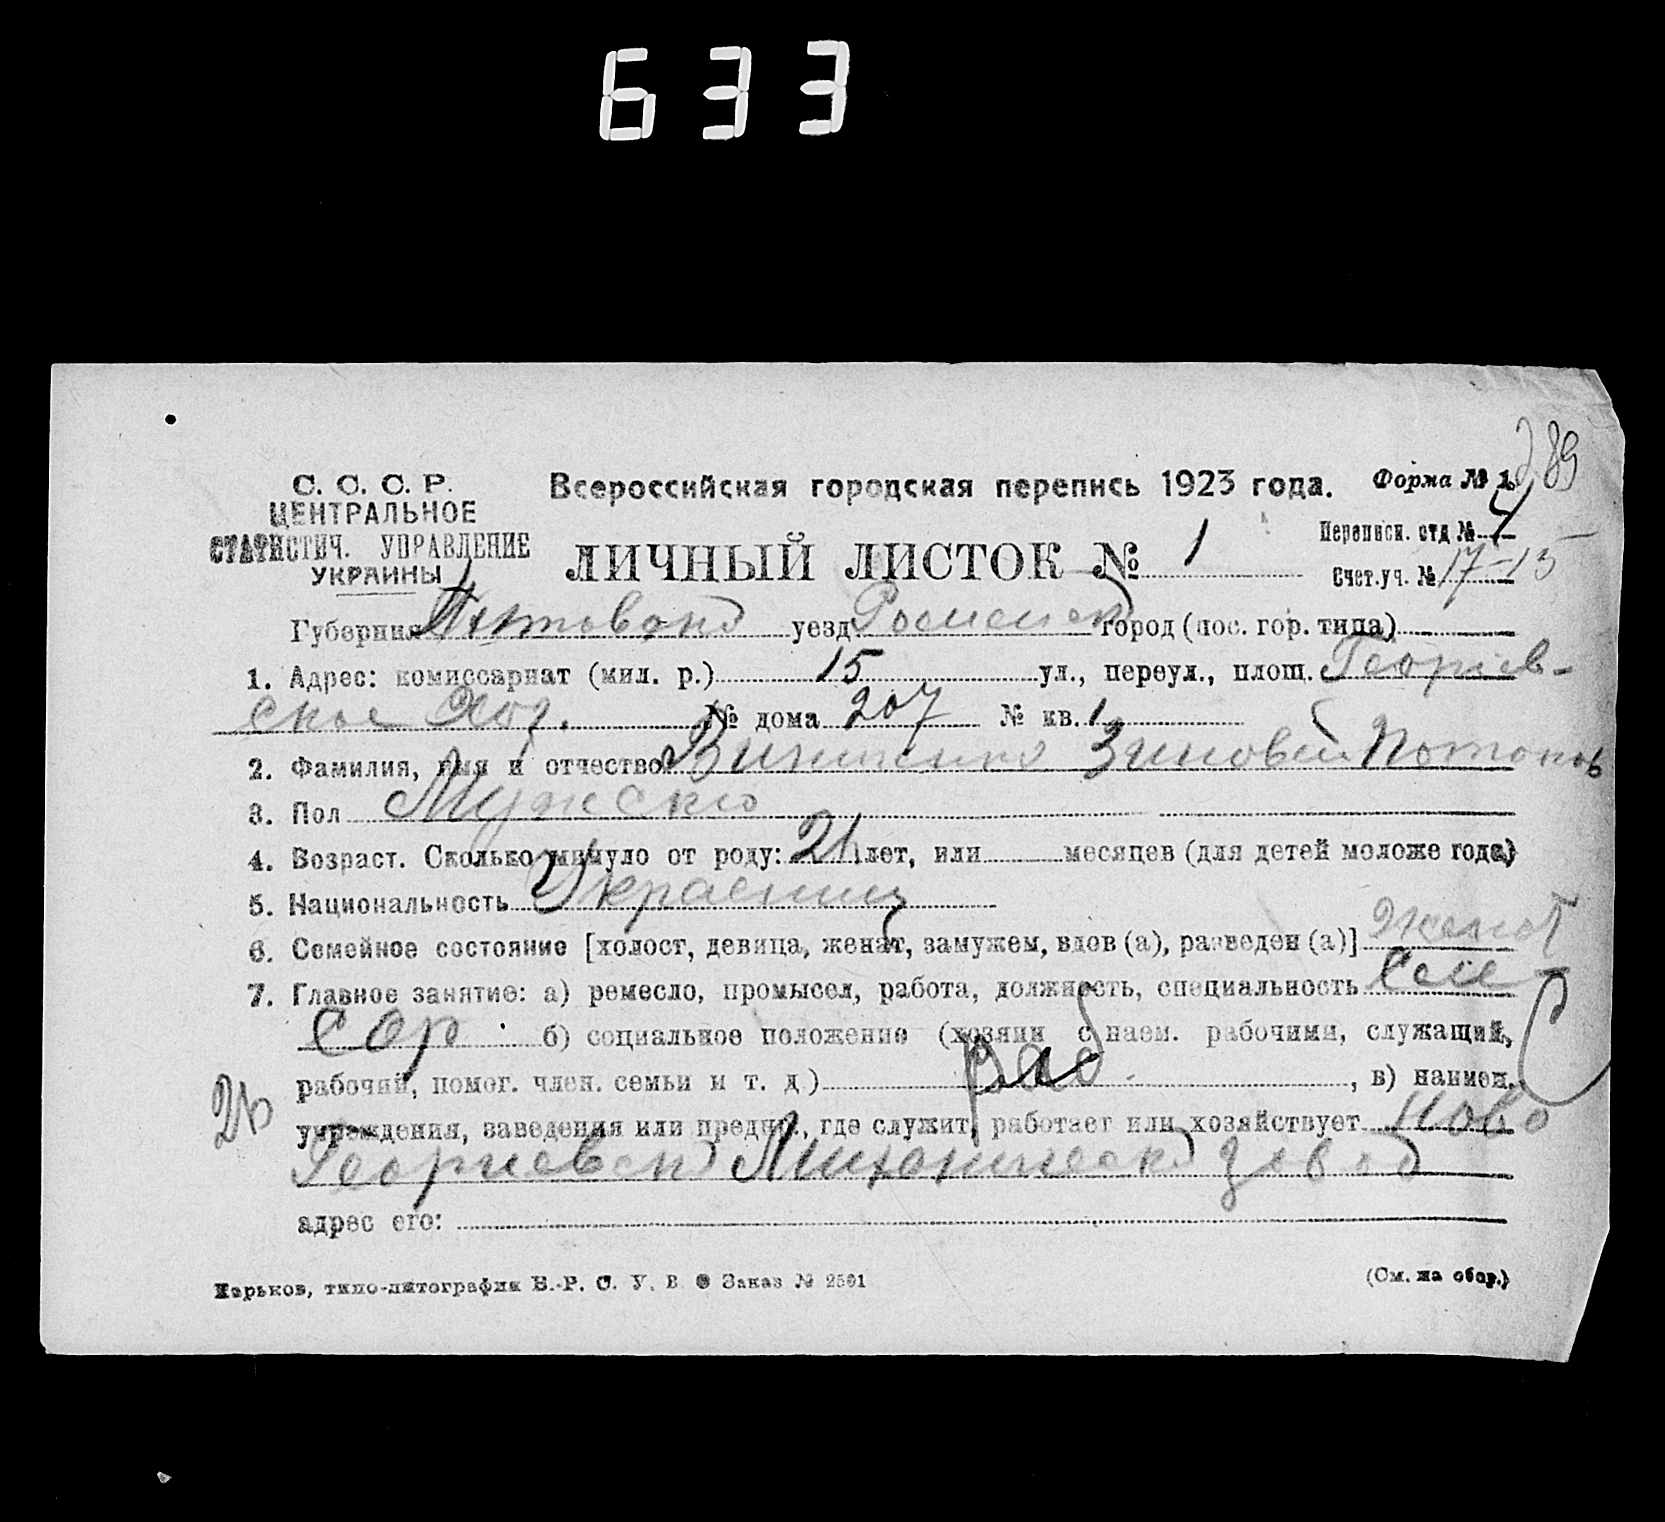 633
289
С. С. С. Р.
ЦЕНТРАЛЬНОЕ
СТАТИСТИЧ. УПРАВЛЕНИЕ
УКРАИНЫ
Всероссийская городская перепись 1923 года. Форма № 1.
Переписн. отд №
ЛИЧНЫЙ ЛИСТОК № 1
Счет.уч. № 17-15
Губерния уезд город (пос. гор. типа)
1. Адрес: комиссариат (мил. р.) 15 ул., переул., площ. Георгіев-
ское № дома 207 № кв. 1
2. Фамилия, имя и отчество Зиновей
3. Пол Мужеско
4. Возраст. Сколько минуло от роду: 21 лет, или месяцев (для детей моложе года)
5. Национальность Украениц
6. Семейное состояние [холост, девица, женат, замужем, вдов (а), разведен (а)] женат
7. Главное занятие: а) ремесло, промысел, работа, должность, специальность Сле-
сор б) социальное положение (хозяин с наем. рабочими, служащий,
рабочий, помог. член. семьи и т. д) раб. , в) наимен.
учреждения, заведения или предпр., где служит, работает или хозяйствует Ново
Георгиевск завод
адрес его:
Харьков, типо-литография В.-Р. С. У. В. Заказ № 2501 (См. на обор.)